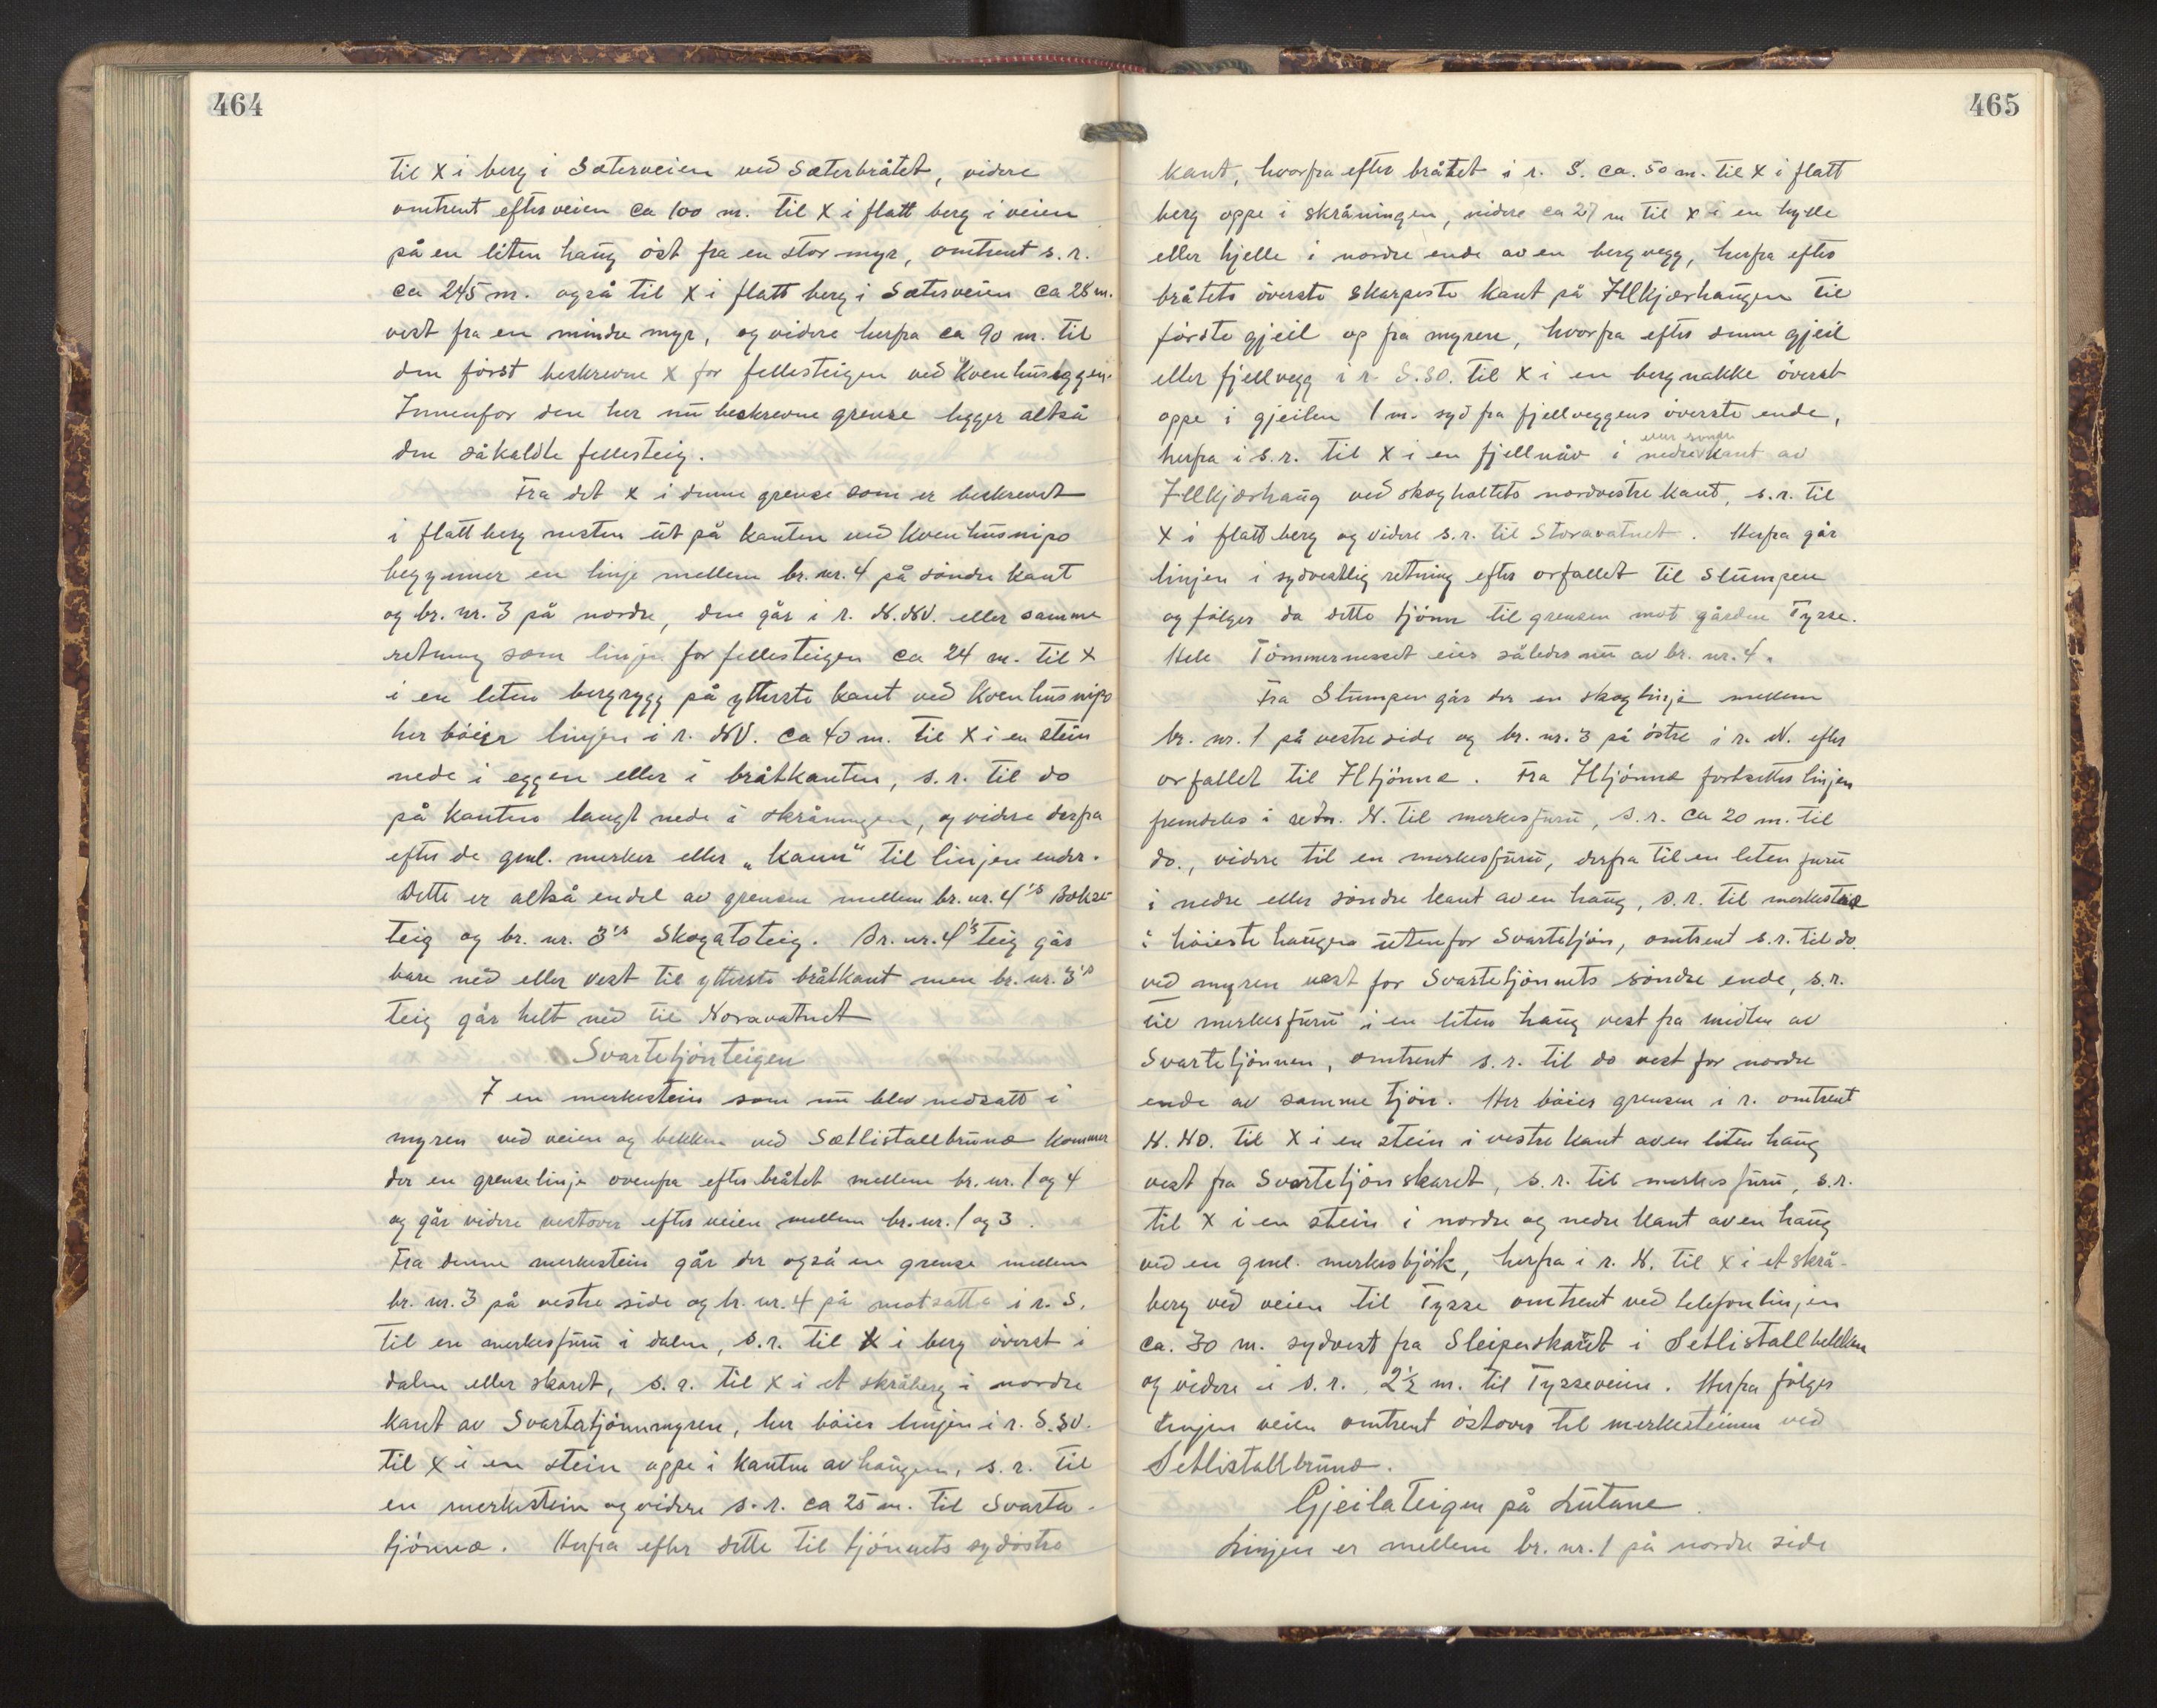 464
til X i berg i Sæterveien ved Sæterbråtet, videre
omtrent efter veien ca 100 m. til X i flatt berg i veien
på en liten haug øst fra en stor myr, omtrent s. r.
ca 245 m. også til X i flatt berg i Sæterveien ca 28 m.
vest fra en mindre myr, og videre herfra ca 90 m. til
den først beskrevne X for fellesteigen ved Kvenhuseggen.
Innenfor den her nu beskrevne grense ligger altså
den såkaldte fellesteig.
Fra det X i denne grense som er beskrevet
i flatt berg nesten ut på kanten ved Kvenhusnipo
begynner en linje mellem br. nr. 4 på søndre kant
og br. nr. 3 på nordre, den går i r. N.NV. eller samme
retning som linjen for fellesteigen ca 24 m. til X
i en liten bergrygg på ytterste kant ved Kvenhusnipo
her bøier linjen i r. NV. ca 40 m. til X i en stein
nede i eggen eller i bråtkanten, s. r. til do
på kanten langt nede i skråningen, og videre derfra
efter de gml. merker eller „kann" til linjen ender.
Dette er altså endel av grensen mellem br. nr. 4's
teig og br. nr. 3's Skogatoteig. Br. nr. 4's teig går
bare ned eller vest til ytterste bråtkant men br. nr. 3's
teig går helt ned til Noravatnet
Svartetjønteigen
I en merkestein som nu blev nedsatt i
myren ved veien og bekken ved Sætlistallbruna kommer
der en grenselinje ovenfra efter bråtet mellem br. nr. 1 og 4
og går videre vestover efter veien mellem br. nr. 1 og 3.
Fra denne merkestein går der også en grense mellem
br. nr. 3 på vestre side og br. nr. 4 på motsatte i r. S.
til en merkesfuru i dalen, s. r. til X i berg øverst i
dalen eller skaret, s. r. til X i et skråberg i nordre
kant av Svartatjønnmyren, her bøies linjen i r. S.SV.
til X i en stein oppe i kanten av haugen, s. r. til
en merkestein og videre s. r. ca 25 m. til Svarta-
tjønna. Herfra efter dette til tjønnets sydøstre
465
kant, hvorfra efter bråtet i r. S. ca. 50 m. til X i flatt
berg oppe i skråningen, videre ca 27 m til X i en hylle
eller hjelle i nordre ende av en bergvegg, herfra efter
bråtets øverste skarpeste kant på Illkjærhaugen til
første gjeil op fra myren, hvorfra efter denne gjeil
eller fjellvegg i r. S.SO. til X i en bergnakke øverst
oppe i gjeilen 1 m. syd fra fjellveggens øverste ende,
herfra i s. r. til X i en fjellnåv i nedre eller søndre kant av
Illkjærhaug ved skogholtets nordvestre kant, s. r. til
X i flatt berg og videre s. r. til Storavatnet. Herfra går
linjen i sydvestlig retning efter orfallet til Stumpen
og følger da dette tjønn til grensen mot gården Tysse.
Hele Tømmernesset eies således nu av br. nr. 4.
Fra Stumpen går der en skoglinje mellem
br. nr. 1 på vestre side og br. nr. 3 på østre i r. N. efter
orfallet til Iltjønna. Fra Iltjønna fortsettes linjen
fremdeles i retn. N. til merkesfuru, s. r. ca 20 m. til
do., videre til en merkesfuru, derfra til en liten furu
i nedre eller søndre kant av en haug, s. r. til
i høieste haugen utenfor Svartetjøn, omtrent s. r. til do.
ved myren vest for Svartetjønnets søndre ende, s. r.
til merkesfuru i en liten haug vest fra midten av
Svartetjønnen, omtrent s. r. til do vest for nordre
ende av samme tjøn. Her bøies grensen i r. omtrent
N. NO. til X i en stein i vestre kant av en liten haug
vest fra Svartetjønskaret, s. r. til merkesfuru, s. r.
til X i en stein i nordre og nedre kant av en haug
ved en gml. merkesbjørk, herfra i r. N. til X i et skrå-
berg ved veien til Tysse omtrent ved telefonlinjen
ca. 30 m. sydvest fra Sleipeskaret i Setlistallbekken
og videre i s. r. 2½ m. til Tysseveien. Herfra følger
linjen veien omtrent østover til merkesteinen ved
Setlistallbruna.
Gjeilateigen på Lutane.
Linjen er mellem br. nr. 1 på nordre side